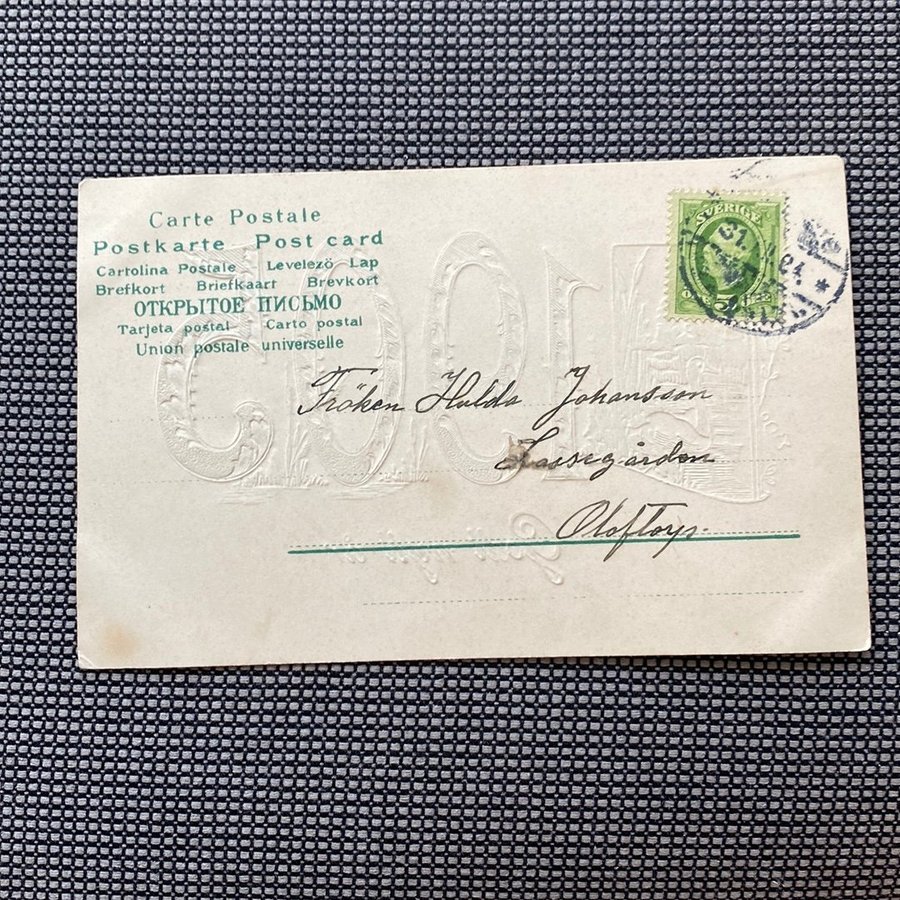 Carte Postale
Postkarte Post card
Cartolina Postale Levelező Lap
Brefkort Briefkaart Brevkort
ОТКРЫТОЕ ПИСЬМО
Tarjeta postal Carto postal
Union postale universelle
SVERIGE
5
Fröken Hulda Johansson
Lassegården
Oloftorp.